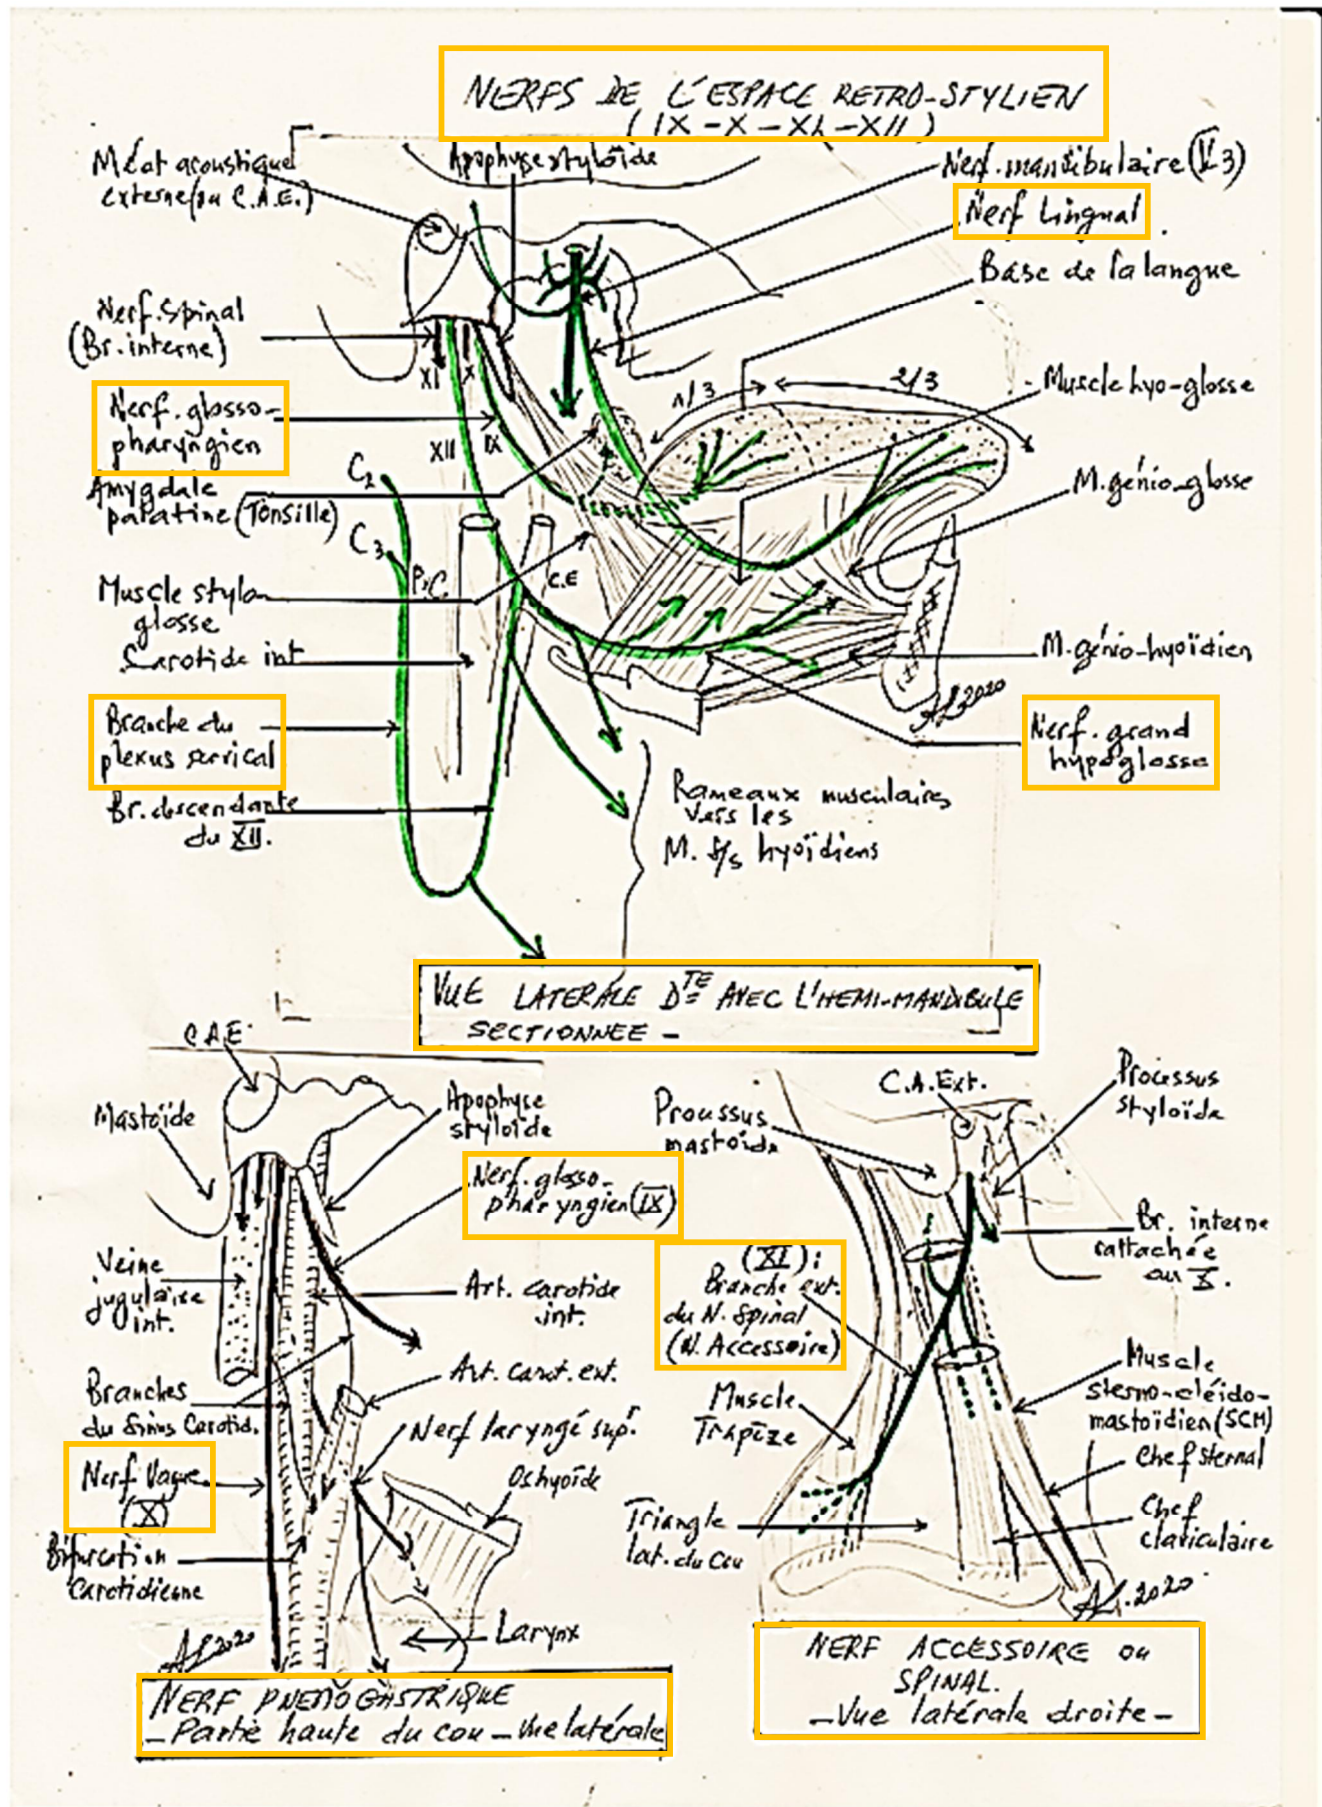 NERFS DE L'ESPACE RETRO-STYLIEN
(IX-X-XI-XII)
Méat acoustique
externe (ou C.A.E.)
Apophyse styloïde
Nerf. mandibulaire (V3)
Nerf Lingual
Base de la langue
Nerf. Spinal
(Br. interne)
XI
X
1/3
2/3
Muscle hyo-glosse
Nerf. glosso-
pharyngien
XII
IX
C2
Amygdale
palatine (Tonsille)
M. génio-glosse
C3
P.C.
C.E
Muscle stylo
glosse
Carotide int
M. génio-hyoïdien
AL 2020
Branche du
plexus servical
Nerf. grand
hypoglosse
Br. descendante
du XII.
Rameaux musculaires
vers les
M. s/s hyoïdiens
VUE LATERALE DTE AVEC L'HEMI-MANDIBULE
SECTIONNEE -
C.A.E
Mastoïde
Apophyse
styloïde
Nerf. glosso-
pharyngien (IX)
Veine
jugulaire
int.
Art. carotide
int.
Art. carot. ext.
Branches
du Sinus Carotid.
Nerf laryngé supr.
Os hyoïde
Nerf Vague
(X)
Bifurcation
Carotidienne
Larynx
AL 2020
NERF PNEMOGASTRIQUE
- Partie haute du cou - Vue latérale
C.A.Ext.
Processus
styloïde
Proussus
mastoïde
Br. interne
rattachée
au X.
(XI):
Branche ext.
du N. Spinal
(N. Accessoire)
Muscle
Trapèze
Muscle
sterno-cléido-
mastoïdien (SCM)
Chef sternal
Chef
claviculaire
Triangle
lat. du Cou
AL. 2020
NERF ACCESSOIRE ou
SPINAL.
- Vue latérale droite -